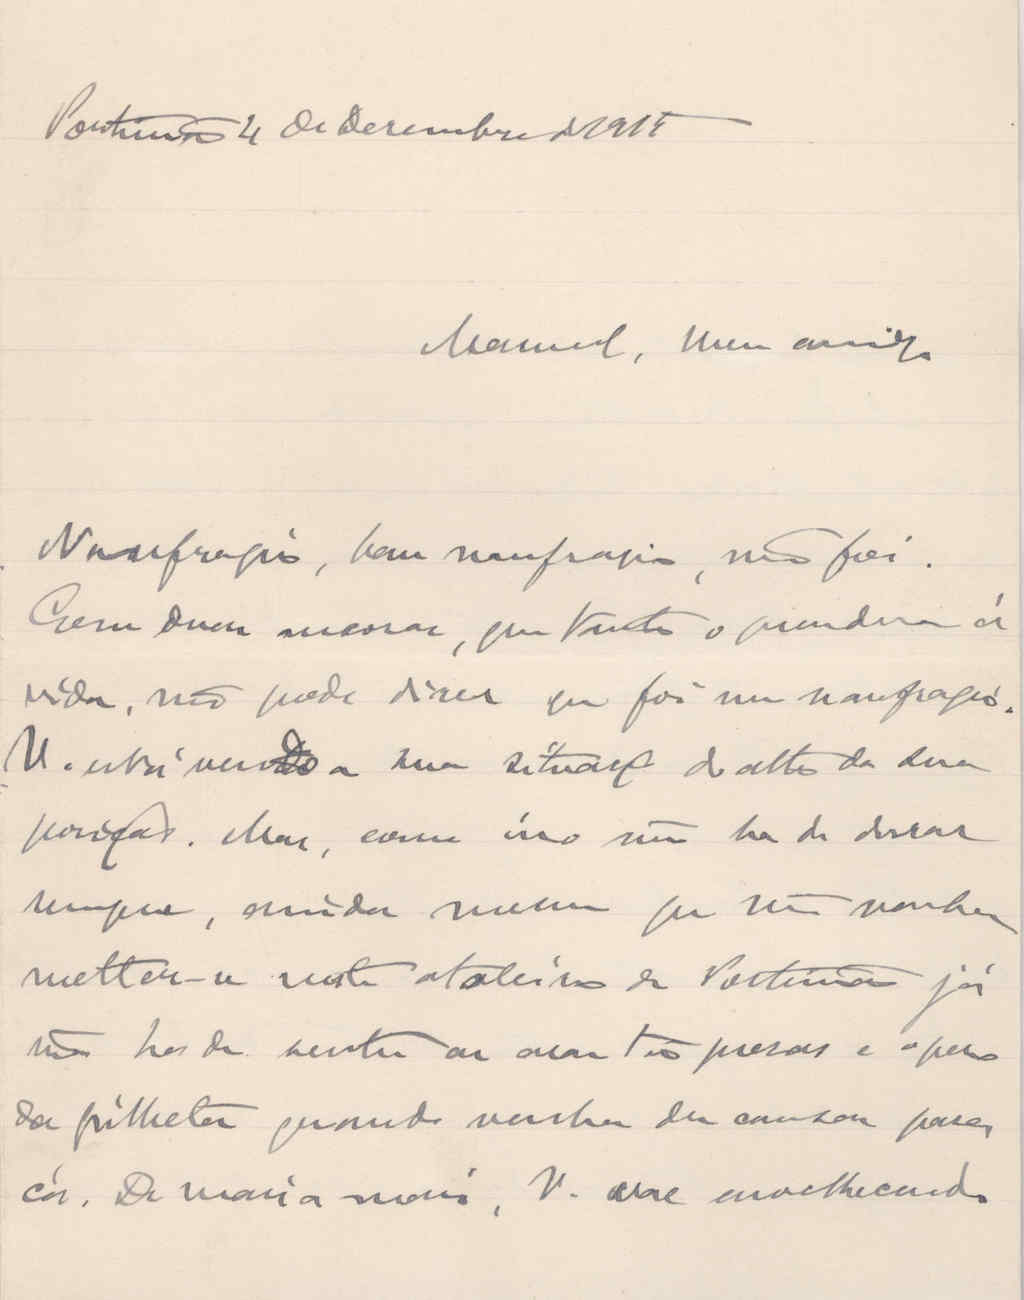 Portimão 4 de Dezembro de 191
Manuel, meu amigo
Naufragio, bom naufragio, não foi.
Com duas amarras, que tanto o prendem á
vida, não póde dizer que foi um naufragio.
V. está vendo a sua situação do alto da sua
posição. Mas, como isso não ha de durar
sempre, ainda mesmo que não venha
metter-se neste atoleiro de Portimão já
não ha de sentir as asas tão presas e o peso
da grilheta quando venha de causa para
cá. De mais a mais, V. vae envelhecendo